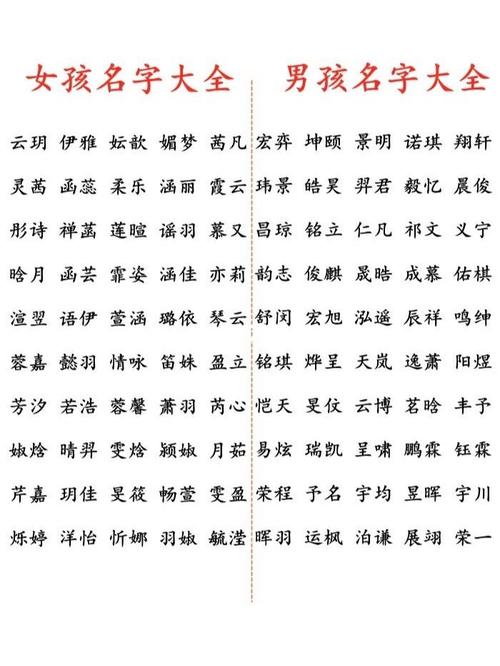 女孩名字大全
云玥 伊雅 妘歆 媚梦 茜凡
灵茜 函蕊 柔乐 涵丽 霞云
彤诗 禅菡 莲暄 谣羽 慕又
晗月 函芸 霏姿 涵佳 亦莉
渲翌 语伊 萱涵 璐依 琴云
蓉嘉 懿羽 情咏 笛姝 盈立
芳汐 若浩 蓉馨 萧羽 芮心
婌焓 晴羿 雯焓 颍婌 月茹
芹嘉 玥佳 旻筱 畅萱 雯盈
烁婷 洋怡 忻娜 羽婌 毓滢
男孩名字大全
宏弈 坤颐 景明 诺琪 翔轩
玮景 皓昊 羿君 毅忆 晨俊
昌琼 铭立 仁凡 祁文 义宁
韵志 俊麒 晟晧 成慕 佑棋
舒闵 宏旭 泓遥 辰祥 鸣绅
铭琪 烨呈 天岚 逸萧 阳煜
恺天 旻伩 云博 茗晗 丰予
易炫 瑞凯 呈啸 鹏霖 钰霖
荣程 予名 宇均 昱晖 宇川
晖羽 运枫 泊谦 展翊 荣一